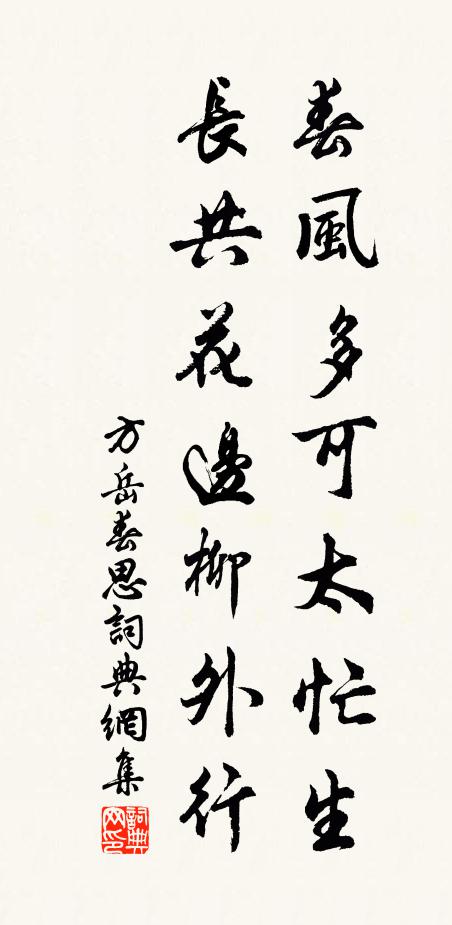 春風多可太忙生
長共花邊柳外行
方岳春思詞典網集
詞典
网印